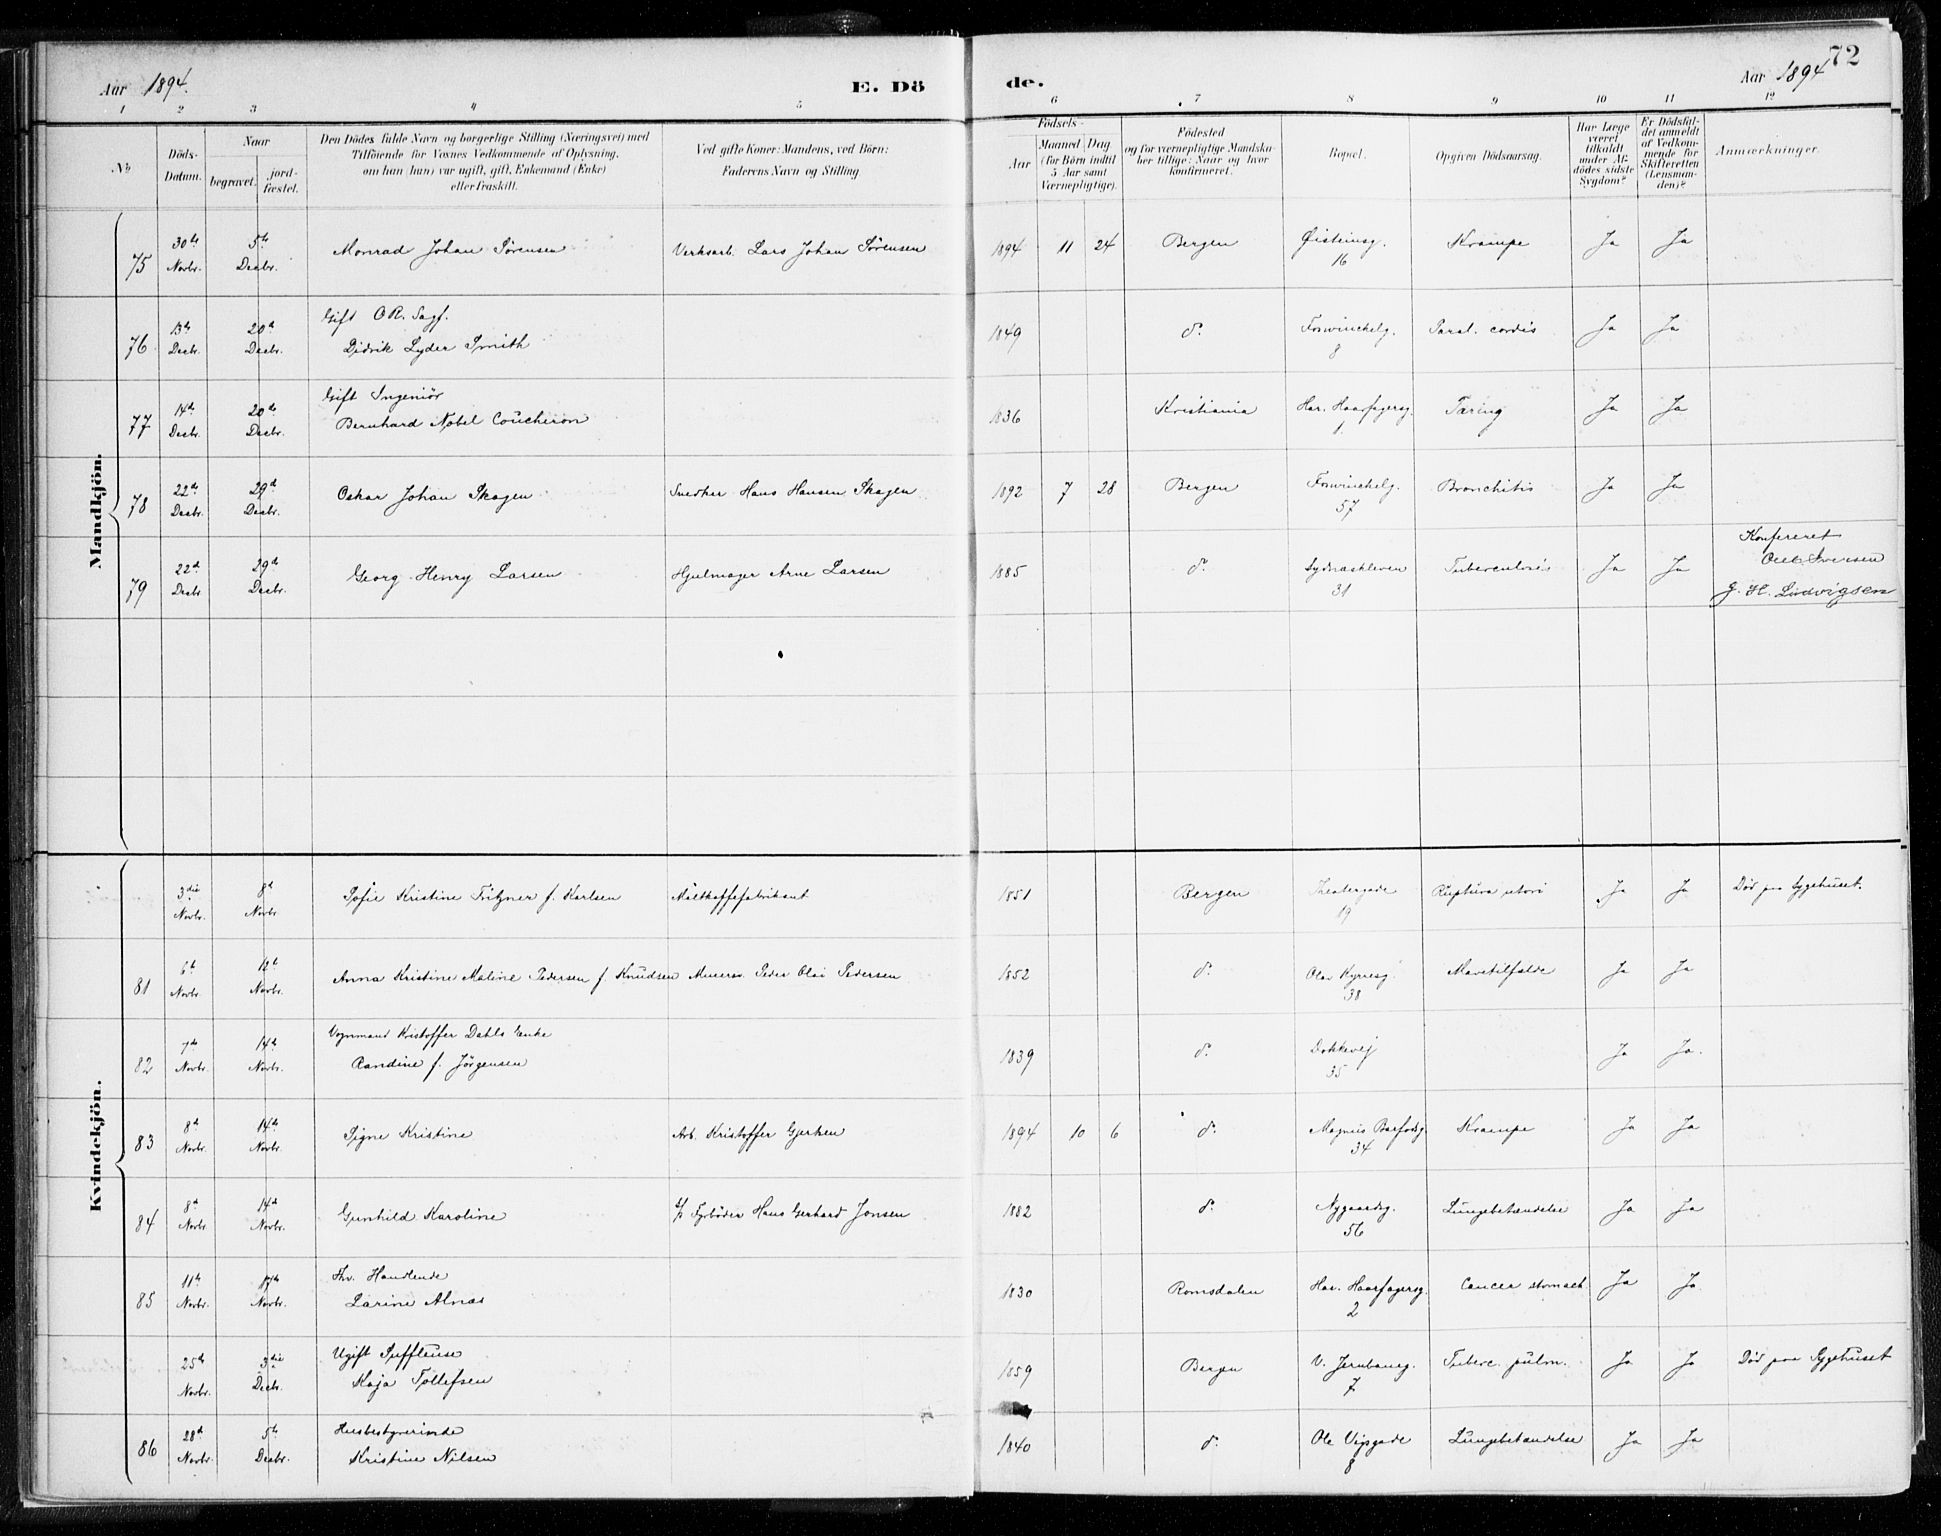 Aar 1894. E. Dö de. Aar 1894 72
1 2 3 4 5 6 7 8 9 10 11 12
No
Döds-Datum.
Naar
begravet.
jord-fæstet.
Den Dödes fulde Navn og borgerlige Stilling (Næringsvei) med
Tilföiende för Voxnes Vedkommende af Oplysning,
om han (hun) var ugift, gift, Enkemand (Enke)
eller fraskilt.
Ved gifte Koner: Mandens, ved Börn:
Faderens Navn og Stilling
Födsels-
Aar
Maaned Dag
(for Börn indtil
5 Aar samt
Værnepligtige).
Födested
og for værnepligtige Mandska-
ber tillige: Naar og hvor
konfirmeret.
Bopæl.
Opgiven Dödsaarsag.
Har Læge
været
tilkaldt
under Af-
dödes sidste
Sygdom?
Er Dödsfal-
det anmeldt
af Vedkom-
mende for
Skifteretten
(Lensman-
den)?
Anmærkninger.
Mandkjön.
75 30te Novbr. 5te Decbr. Monrad Johan Sørensen Verksarb. Lars Johan Sørensen 1894 11 24 Bergen Øisteinsg. 16 Krampe Ja Ja
76 13de Decbr. 20de Decbr. Gift O.R. Sagf.
Didrik Lyder Smith 1849 do. Forswinckelg. 8 Paral. cordis Ja Ja
77 14de Decbr. 20de Decbr. Gift Ingeniör
Bernhard Nobel Coucheron 1836 Kristiania Har. Haarfagersg. 1. Tæring Ja Ja
78 22de Decbr. 29de Decbr. Oskar Johan Skagen Snedker Hans Hansen Skagen 1892 7 28 Bergen Forswinckelg. 57 Bronchitis Ja Ja
79 22de Decbr. 29de Decbr. Georg Henry Larsen Hjulmager Arne Larsen 1885 do. Sydnæskleven 31 Tuberculosis Ja Ja
Konfereret
Ole Iversen
G. H. Ludvigsen
Kvindekjön.
3die Novbr. 8de Novbr. Sofie Kristine Fritzner f. Karlsen Maltkaffefabrikant 1851 Bergen Theatergade 19 Ruptura uteri Ja Ja Död paa Sygehuset.
81 6te Novbr. 12te Novbr. Anna Kristine Maline Pedersen f. Knudsen Murersv. Peder Olai Pedersen 1852 do. Olav Kyrresg. 38 Mavetilfælde Ja Ja
82 7de Novbr. 14de Novbr. Vognmand Kristoffer Dahls Enke
Randine f. Jörgensen 1839 do. Dokkevej 35 Ja Ja.
83 8de Novbr. 14de Novbr. Signe Kristine Arb. Kristoffer Gjertsen 1894 10 6 do. Magnus Barfodsg. 34 Krampe Ja Ja
84 8de Novbr. 14de Novbr. Gunhild Karoline Fyrböder Hans Gerhard Jonsen 1882 do. Nygaardsg. 56 Lungebetændelse Ja Ja
85 11te Novbr. 17de Novbr. Fhv. Handlende
Larine Alnæs 1830 Romsdalen Har. Haarfagersg. 2 Cancer stomach. Ja Ja
25de Novbr. 3die Decbr. Ugift Suffleuse
Kaja Tollefsen 1859 Bergen V. Jernbaneg. 7 Tuberc. pulm. Ja Ja Död paa Sygehuset
86 28de Novbr. 5te Decbr. Husbestyrerinde
Kristine Nilsen 1840 do. Ole Vigsgade 8 Lungebetændelse Ja Ja